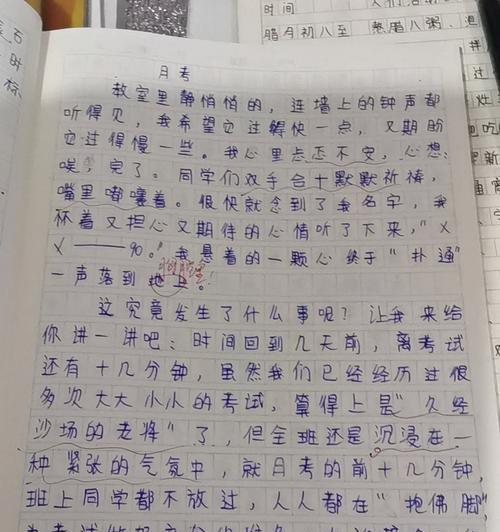 时间
腊月初八至
熬腊八粥、泡
月考
教室里静悄悄的，连墙上的钟声都
听得见，我希望它过得快一点，又期盼
它过得慢一些。我心里忐忑不安，心想：
唉，完了。同学们双手合十默默祈祷，
嘴里嘟囔着。很快就念到了我名字，我
怀着又担心又期待的心情听了下来，"X
X——90。"我悬着的一颗心终于"扑通"
一声落到地上。
这究竟发生了什么事呢？让我来给
你讲一讲吧：时间回到几天前，离考试
还有十几分钟，虽然我们已经经历过很
多次大大小小的考试，算得上是"久经
沙场的老将"了，但全班还是沉浸在一
种紧张的气氛中，就月考的前十几分钟，
班上同学都不放过，人人都在"抱佛脚"